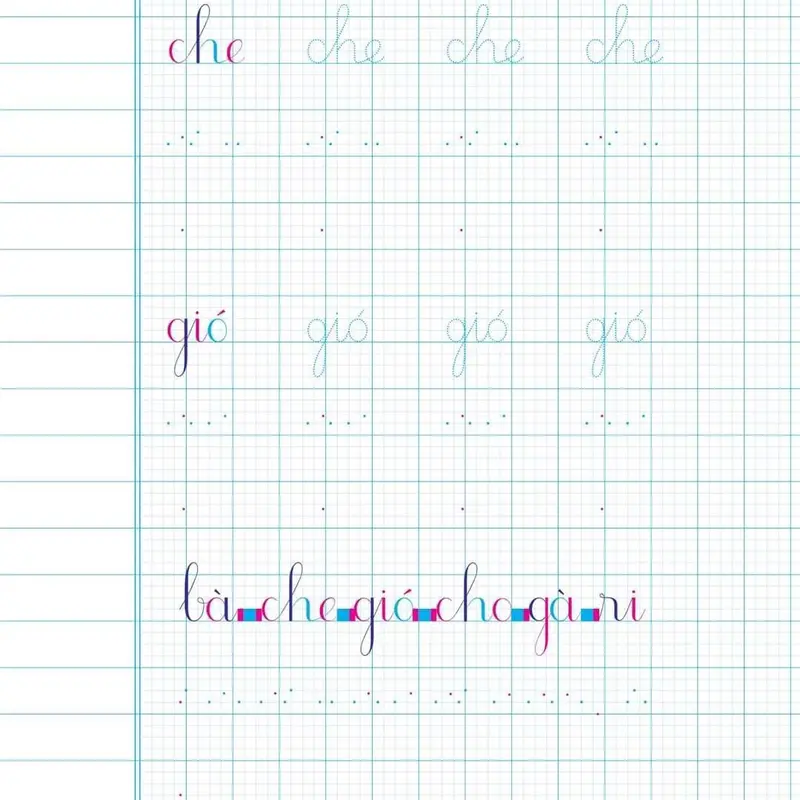 che che che che
gió gió gió gió
bà che gió cho gà ri